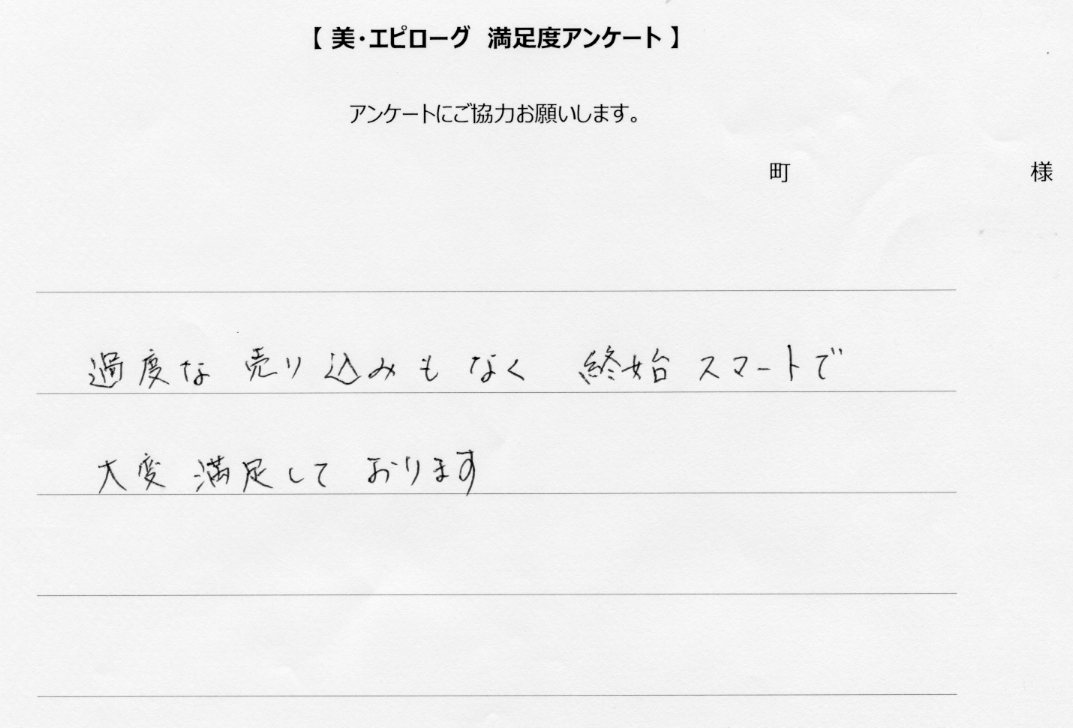 【 美・エピローグ 満足度アンケート 】
アンケートにご協力お願いします。
町 様
過度な売り込みもなく 終始スマートで
大変満足しております